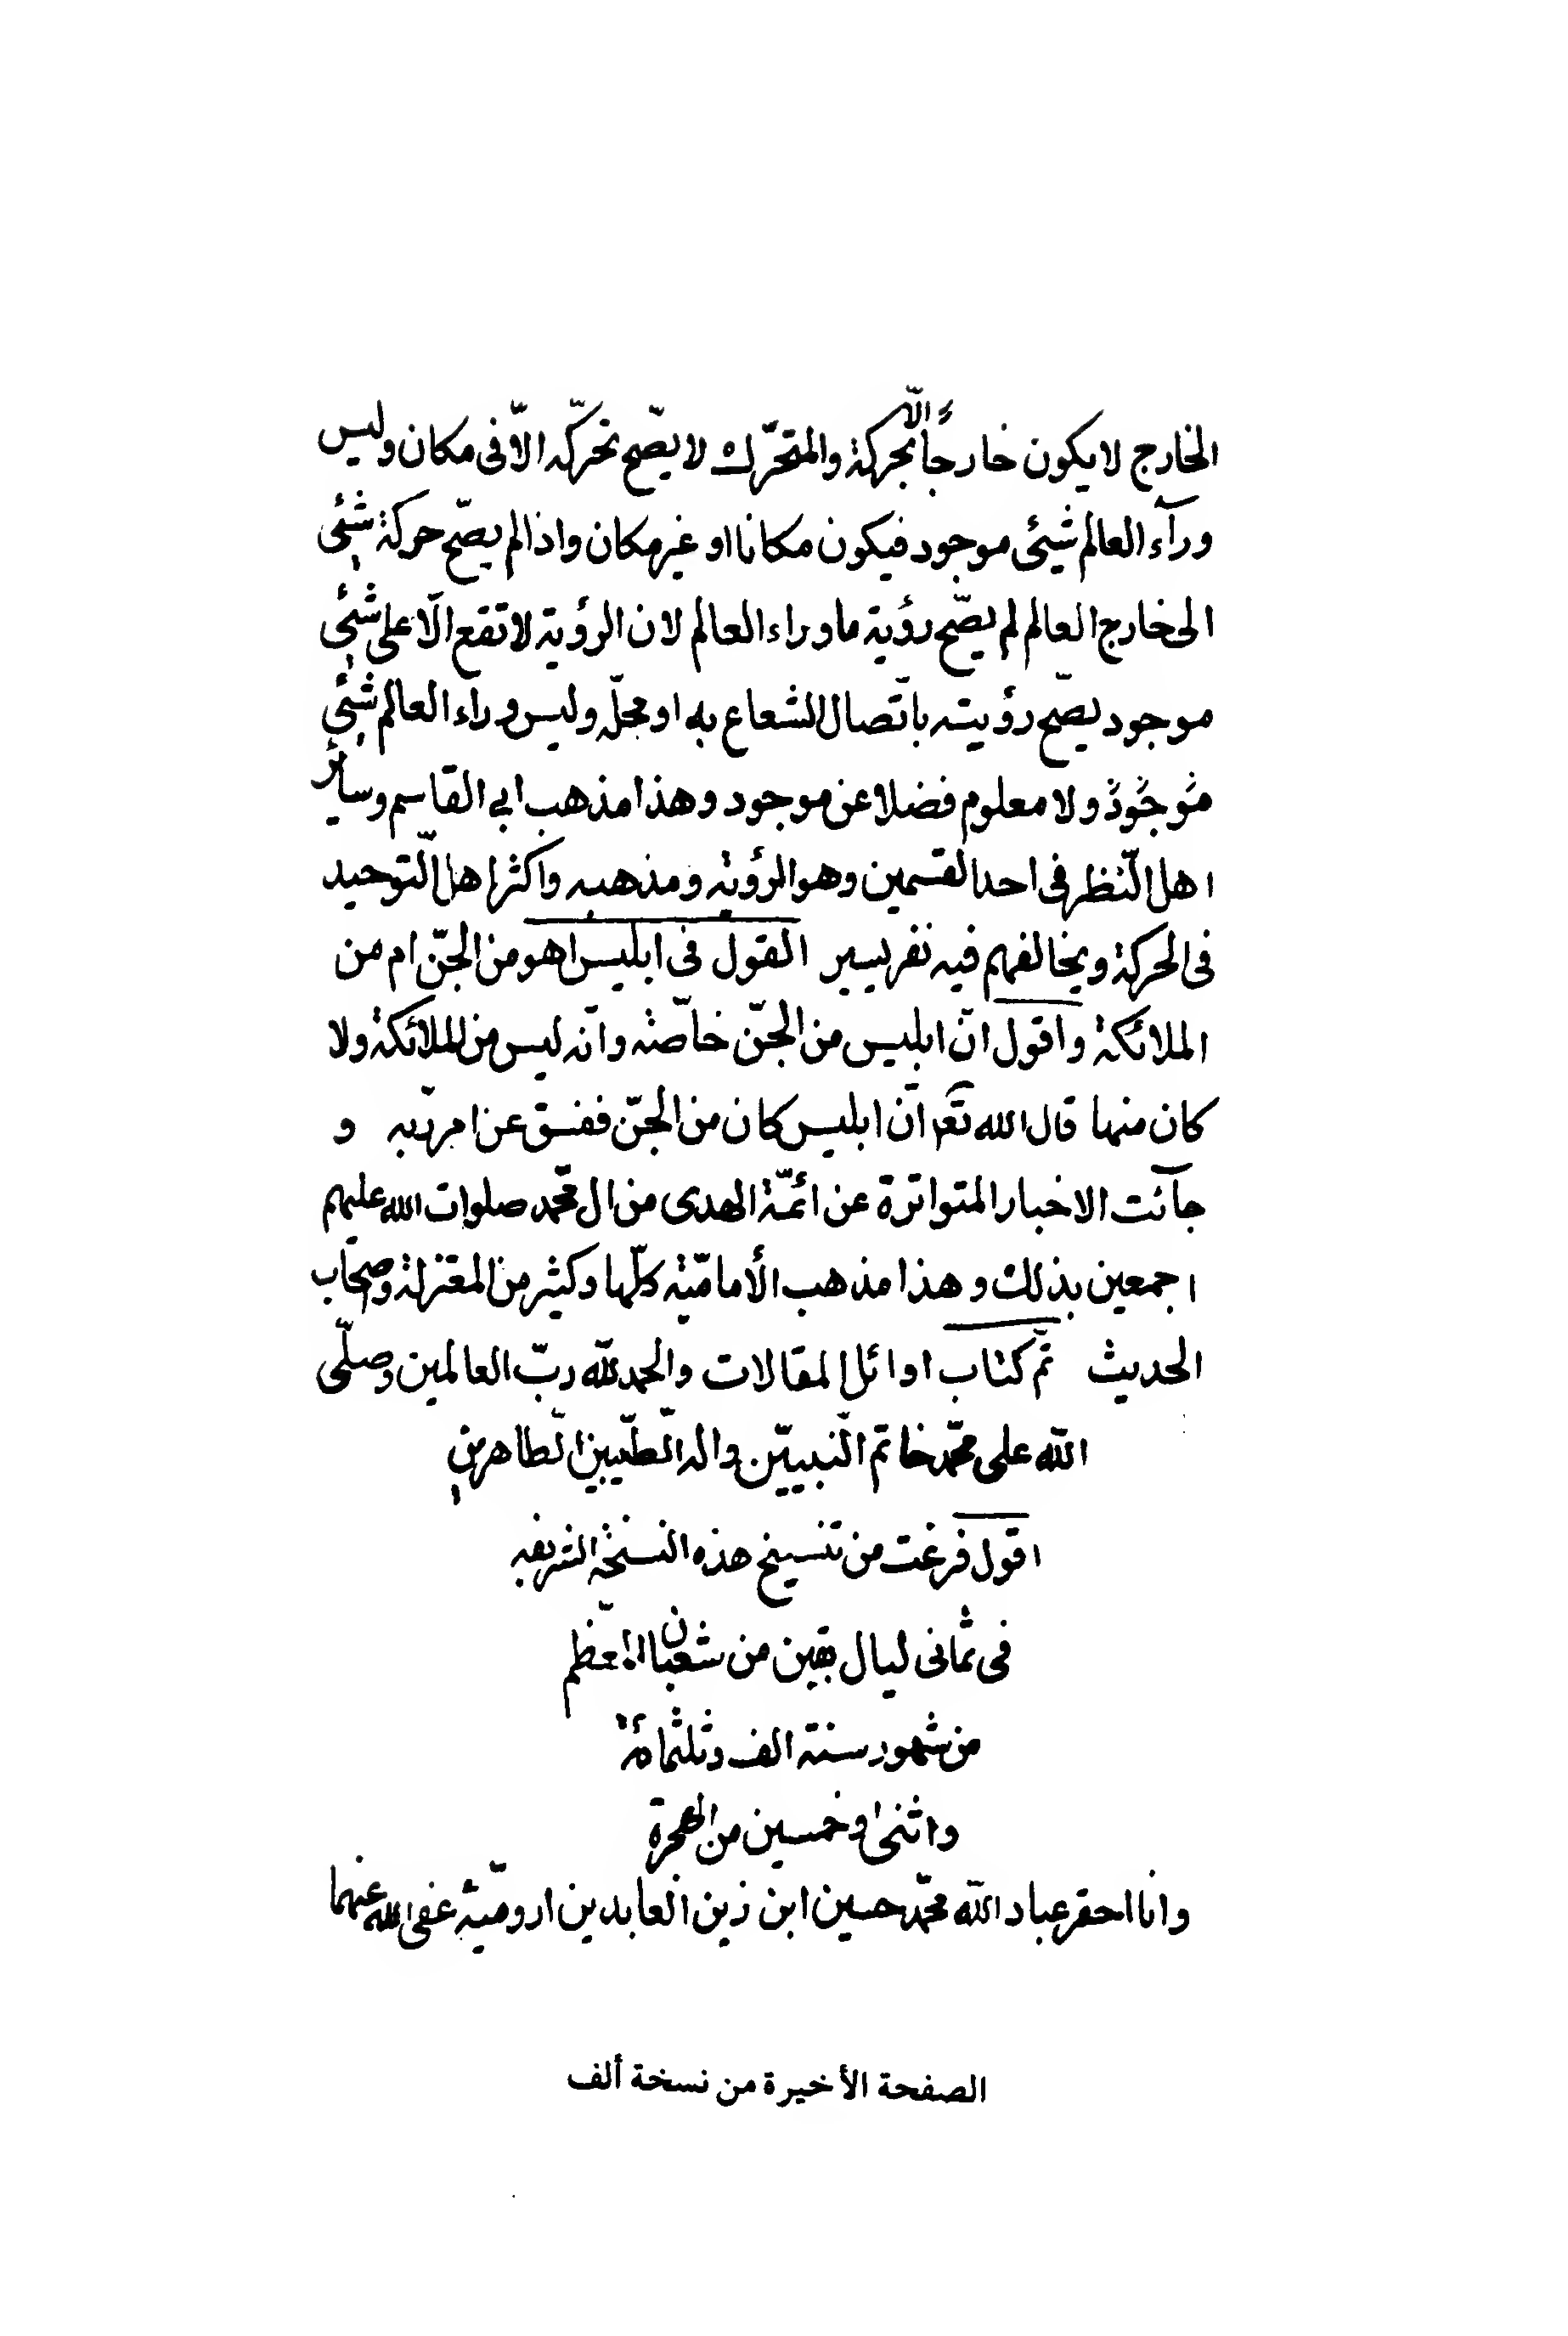 الخارج لا يكون خارجاً الّا بحركة والمتحرّك لا يصّح تحركّه الّا فى مكان وليس
ورآء العالم شيئى موجود فيكون مكانا او غير مكان واذا لم يصّح حركة شيئى
الى خارج العالم لم يصّح رؤية ما وراء العالم لان الرؤية لا تقع الّا على شيئى
موجود يصّح رؤيته باتّصال الشعاع به او محلّه وليس وراء العالم شيئى
موجود ولا معلوم فضلا عن موجود وهذا مذهب ابي القاسم وسائر
اهل النّظر فى احد القسمين وهو الرؤية ومذهبه واكثر اهل التّوحيد
فى الحركة ويخالفهم فيه نفر يسير القول فى ابليس اهو من الجنّ ام من
الملائكة واقول انّ ابليس من الجنّ خاصّة وانّه ليس من الملائكة ولا
كان منها قال الله تعٓ انّ ابليس كان من الجنّ ففسق عن امر ربّه و
جآئت الاخبار المتواترة عن ائمّة الهدى من ال محّمد صلوات الله عليهم
اجمعين بذلك وهذا مذهب الأماميّة كلّها وكثير من المعتزلة واصحاب
الحديث تمّ كتاب اوائل المقالات والحمد للّه ربّ العالمين وصلّى
اللّه على محمّد خاتم النّبييّن واله الطّيبين الطّاهرين
اقول فرغت من تنسيخ هذه النسخة الشريفه
فى ثمانى ليال بقين من شعبان المعظّم
من شهور سنة الف وثلثمائة
واثنى وخمسين من الهجرة
وانا احقر عباد اللّه محمّد حسين ابن زين العابدين اروميّة عفى الله عنهما
الصفحة الأخيرة من نسخة ألف